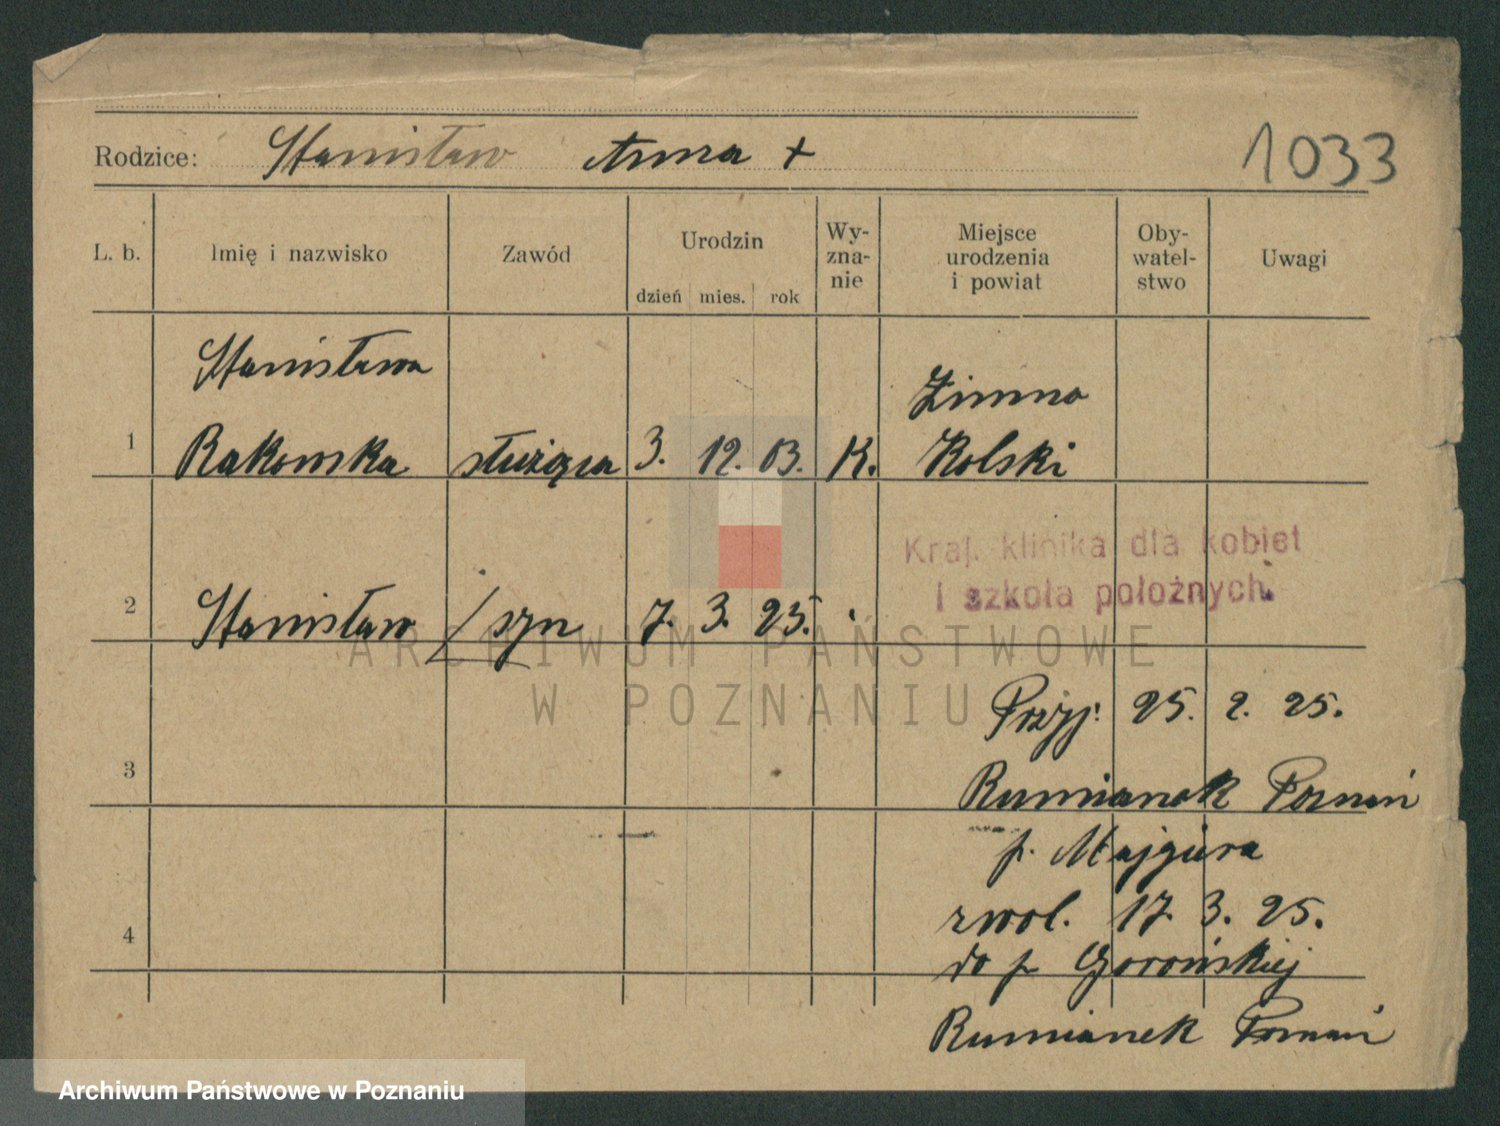 Rodzice: Stanisław Anna +
1033
L. b. Imię i nazwisko Zawód Urodzin dzień mies. rok Wy-zna-nie Miejsce urodzenia i powiat Oby-watel-stwo Uwagi
Stanisława
Zimna
1 Rakowska służąca 3. 12. 03. K. Kolski
Kraj. klinika dla kobiet
i szkoła położnych.
2 Stanisław / syn 7. 3. 25.
ARCHIWUM PAŃSTWOWE
W POZNANIU
Przyj: 25. 2. 25.
3
Rumianek Poznań
p. Majgura
zwol. 17. 3. 25.
4
do p Gorońskiej
Rumianek Poznań
Archiwum Państwowe w Poznaniu